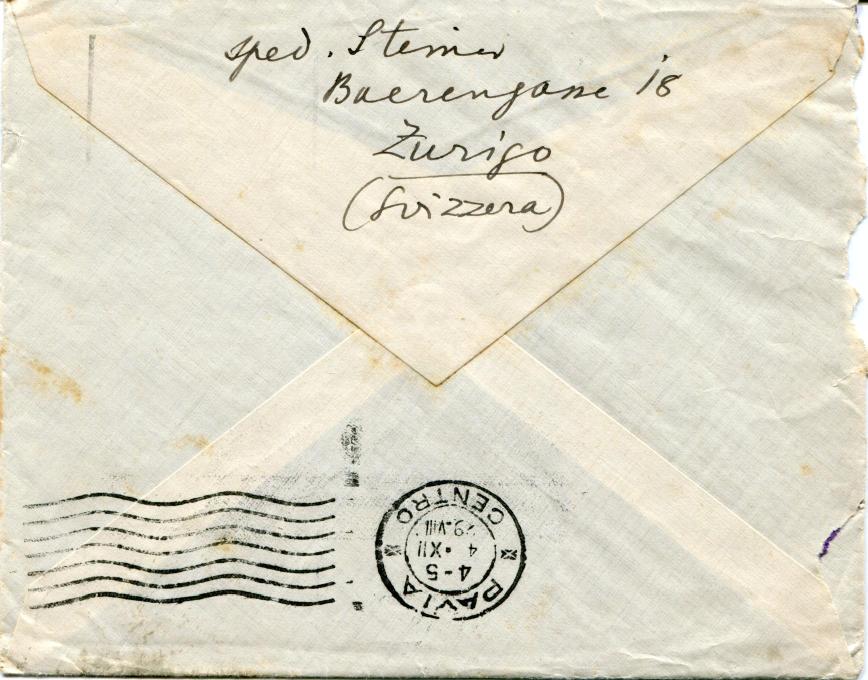 sped. Steiner
Baerengasse 18
Zurigo
(Svizzera)
PAVIA
4-5
4•XII
29.VIII
CENTRO